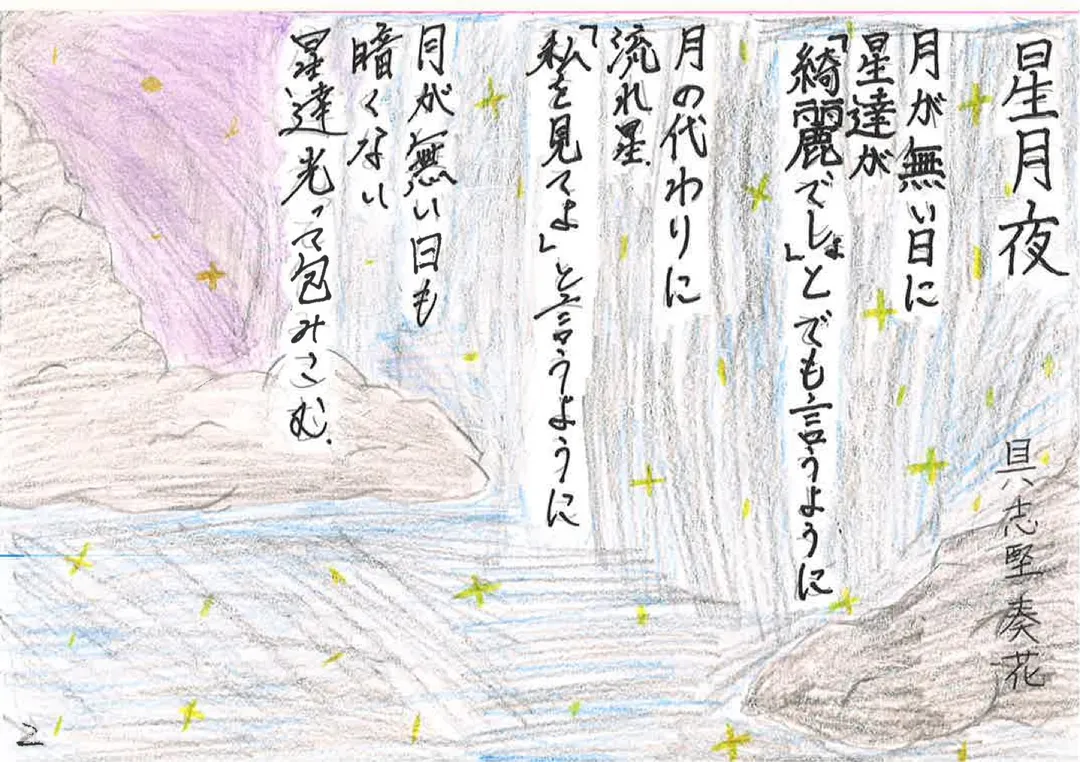 星月夜
具志堅奏花
月が無い日に
星達が
「綺麗でしょ」とでも言うように
月の代わりに
流れ星
「私を見てよ」と言うように
月が無い日も
暗くない
星達光って包みこむ
2